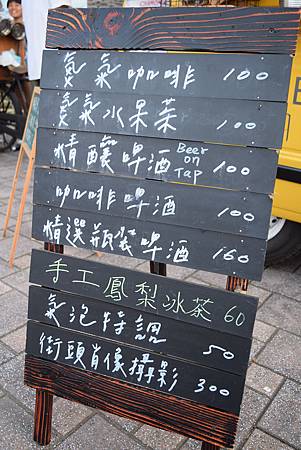 氮氣咖啡 100
氮氣水果茶 100
精釀啤酒 Beer on Tap 100
咖啡啤酒 100
精選瓶裝啤酒 160
手工鳳梨冰茶 60
氣泡特調 50
街頭肖像攝影 300